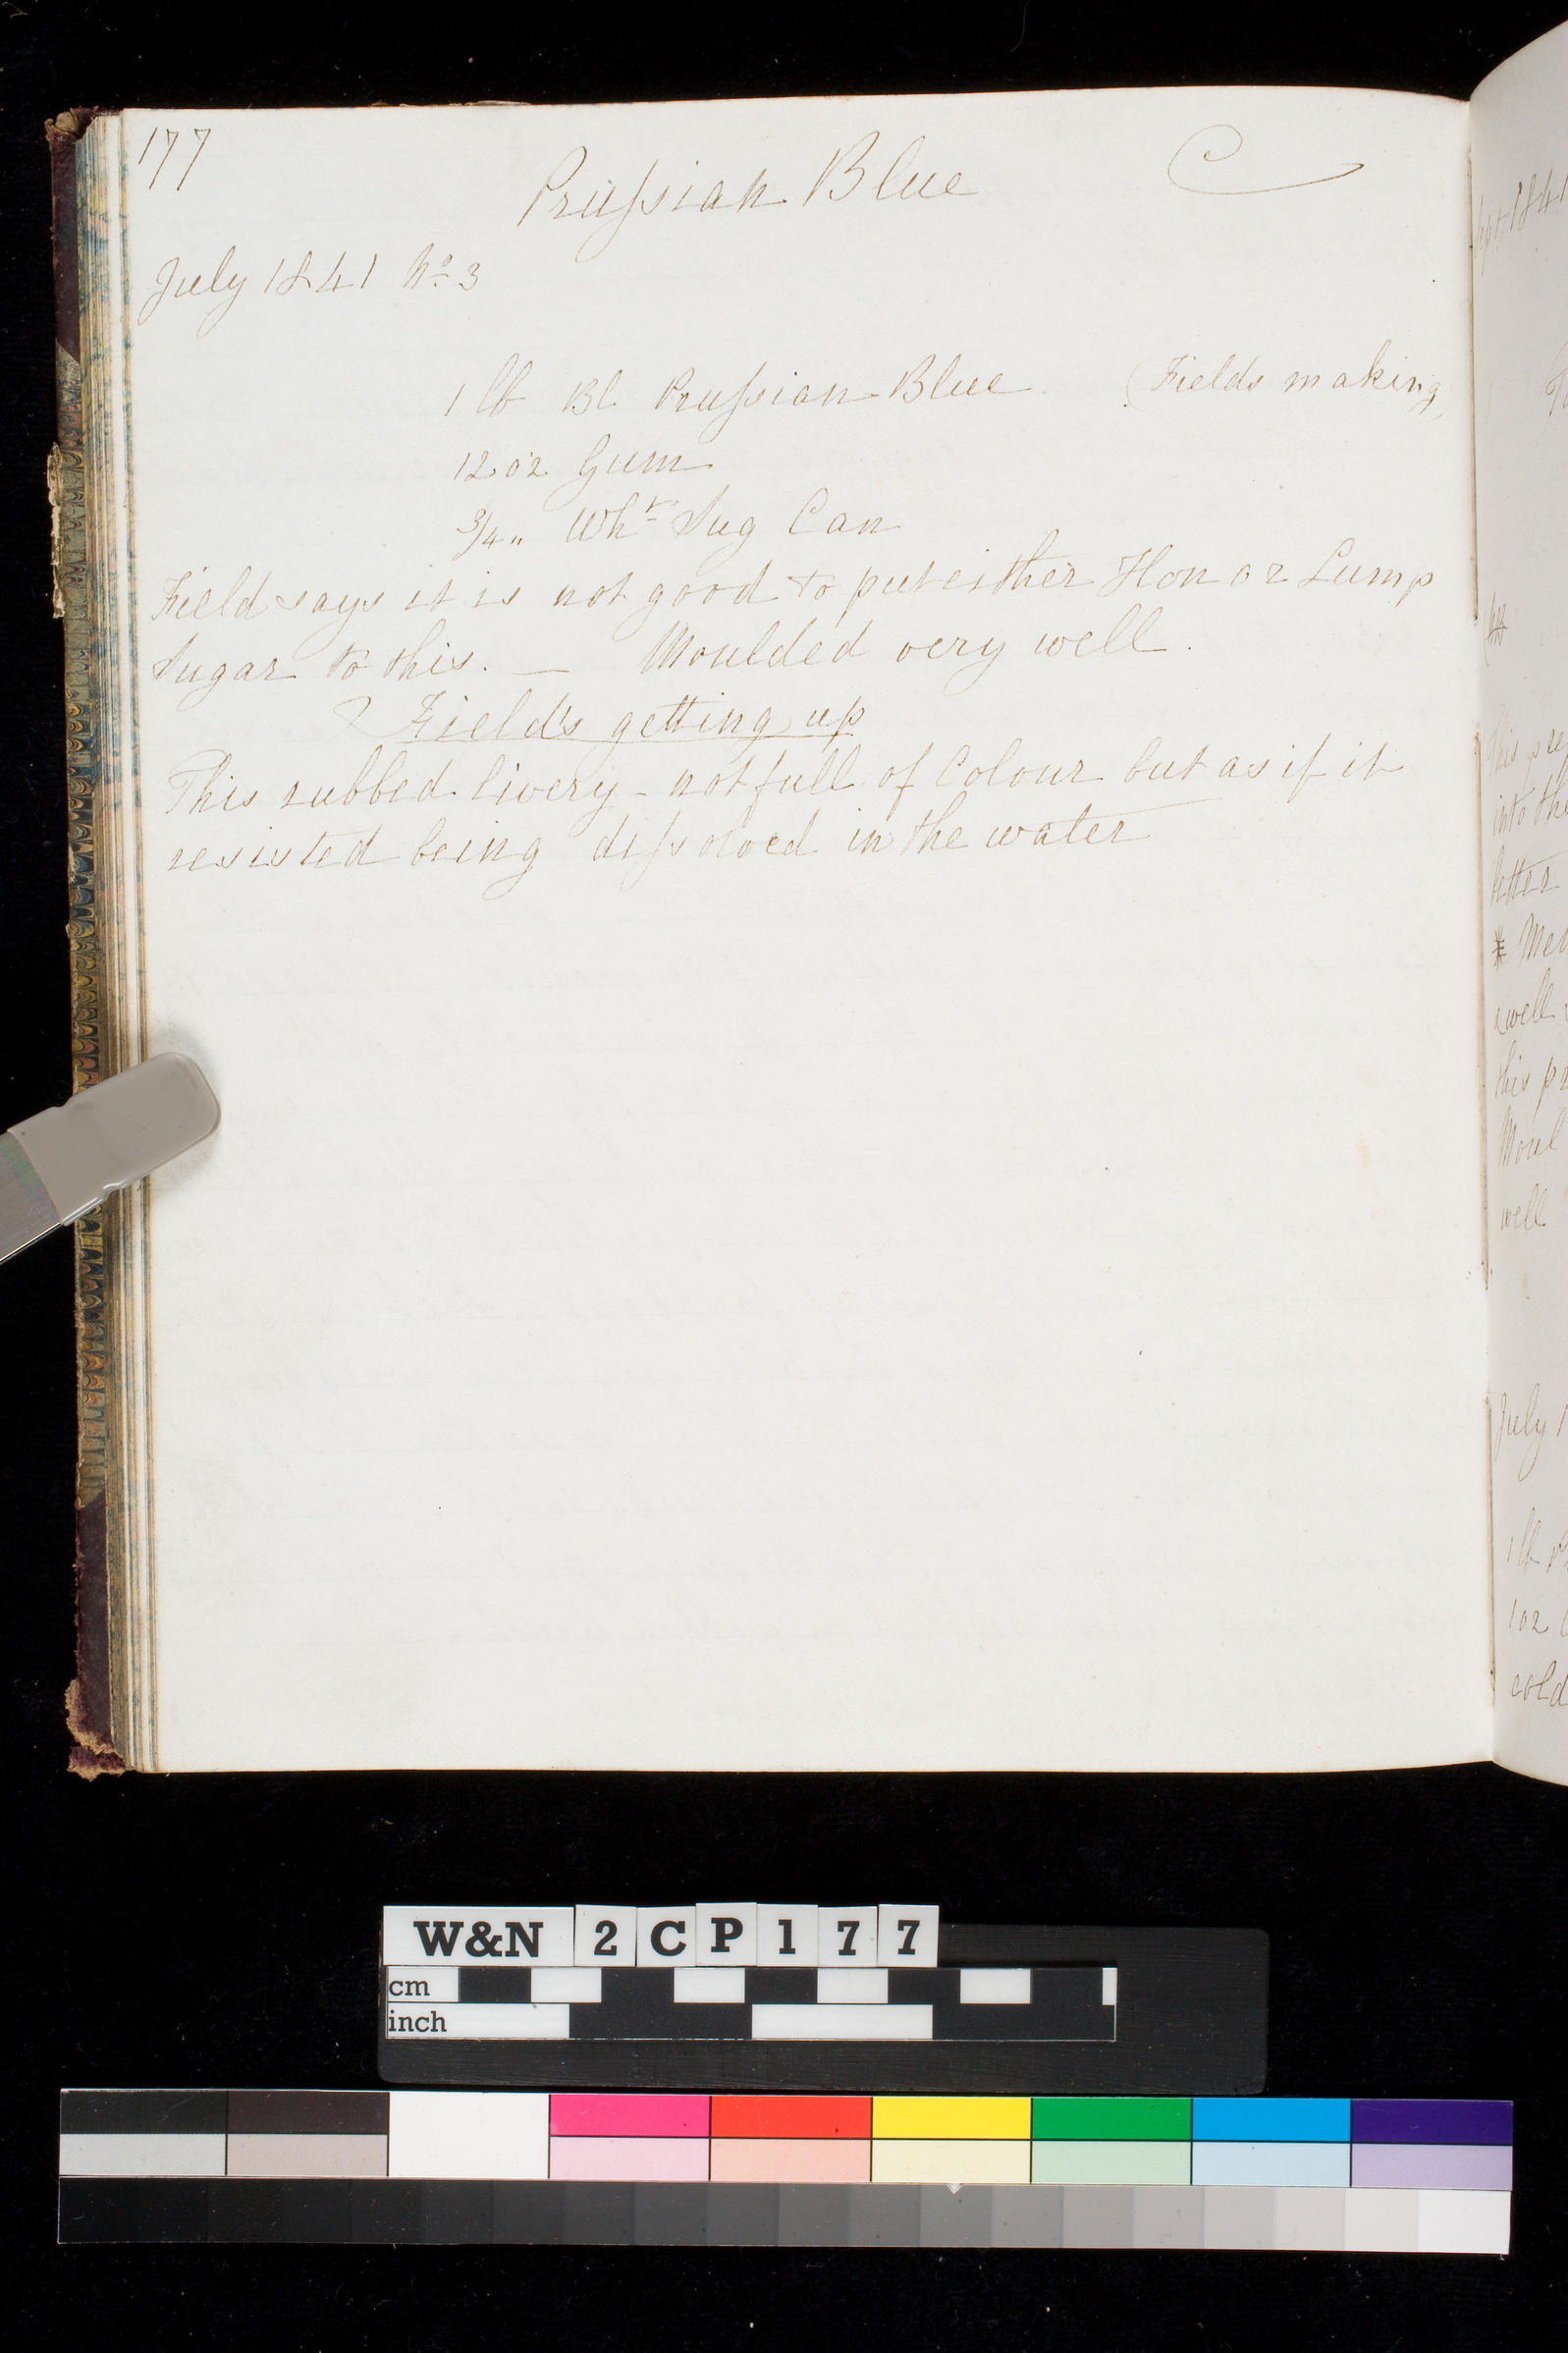 177
Prussian Blue C
July 1841 No 3
1 lb Bl Prussian Blue (Fields making)
12 oz Gum
3/4 " Wht Sug Can
Field says it is not good to put either Hon or Lump
Sugar to this. — Moulded very well.
? Field's getting up
This rubbed livery - not full of Colour but as if it
resisted being dissolved in the water
Sept 1841
This pre
into the
better
* Med
well
this pr
Moul
well
July 1
1 lb
1 oz
cold
W&N 2CP177
cm
inch